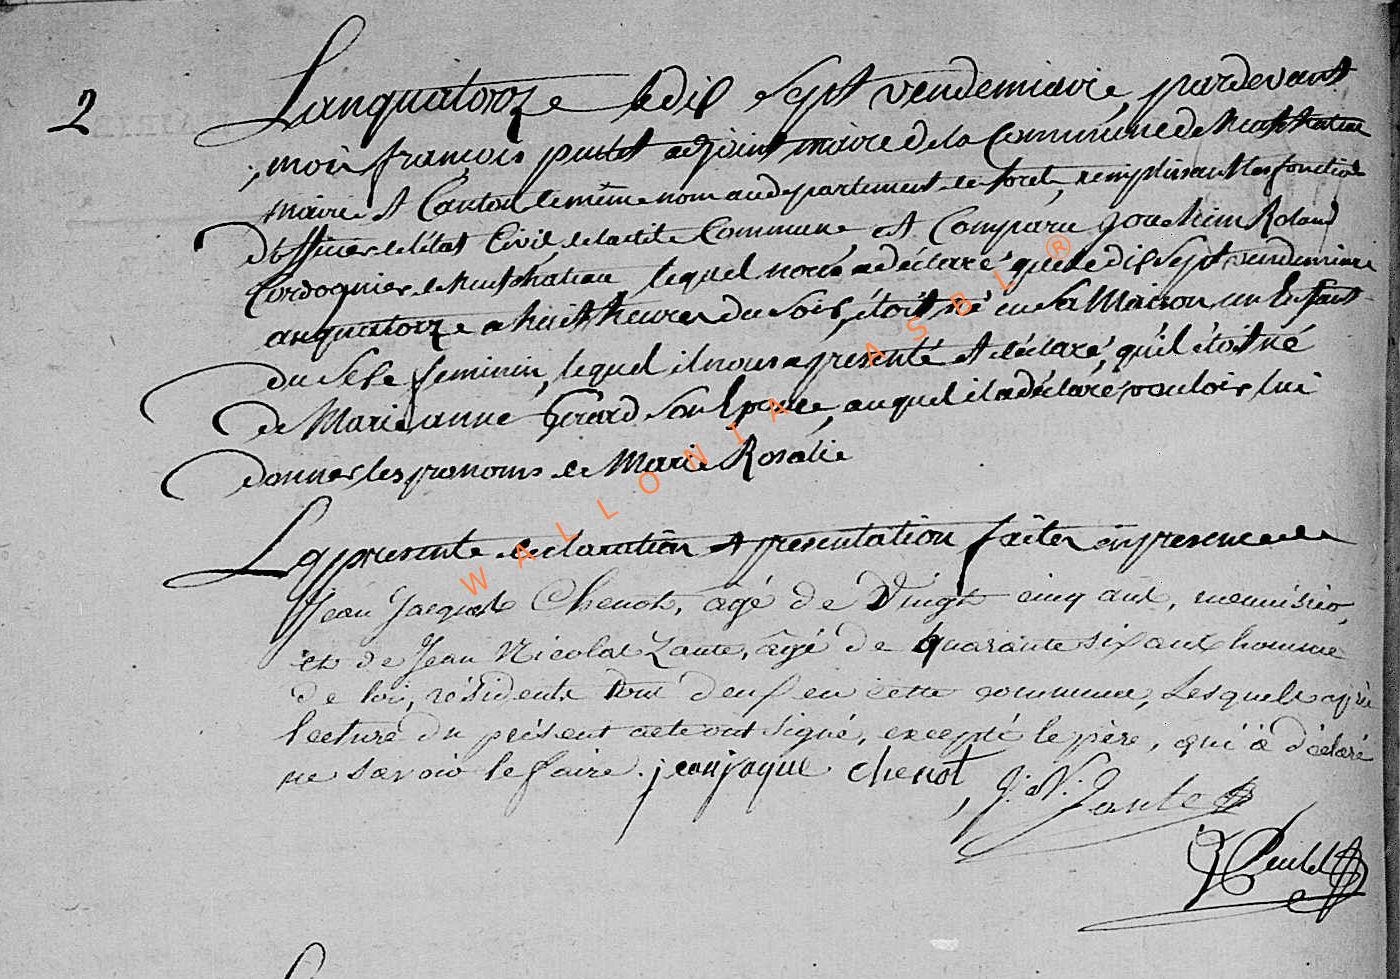 2
L'an quatorze le dix sept vendemiaire, pardevant
moi françois pastel adjoint maire de la Commune de Neufchateau
mairie et Canton le même nom au departement de foret, remplissant les fonctions
d'officier de l'état Civil de la dite Commune est Comparu Joachim Roland
Cordognier de Neufchateau lequel nous a déclaré que le dix sept vendemiaire
an quatorze a huit heures du soir, étoit né en sa Maison un Enfant
du sexe feminin, lequel il nous a presenté et déclaré, qu'il étoit né
de Marie anne Gerard son Epouse, auquel il a déclaré vouloir lui
donner les pronoms de Marie Rosalie
La presente declaration et presentation faites en presence de
Jean Jacques Chenot, agé de Vingt cinq ans, menuisier,
et de Jean Nicolas Zante, agé de quarante six ans homme
de loi, résidents tous deux en cette commune, Lesquels après
lecture du présent acte ont signé, excepté le père, qui a déclaré
ne savoir le faire. jean jaque chenot, J: N: Zante
WALLONIA ASBL ®